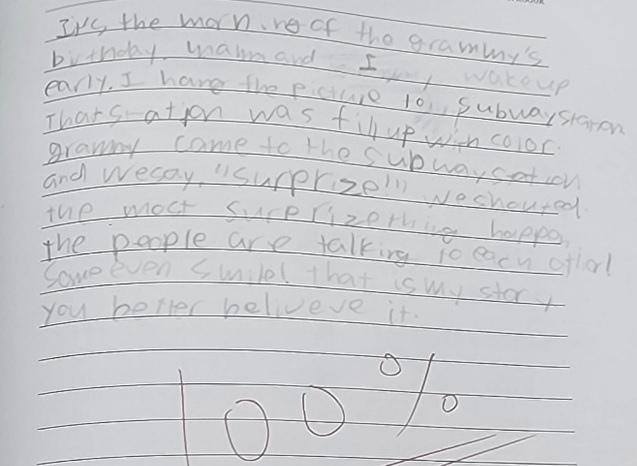 It's the morning of the grammy's
birthday. mam and I wakeup
early. I hang the picture to subwaystation
That station was fill up with color.
grammy came to the subwaystation
and we say, "surprize!" we shouted.
the most surprizething happe,
the people are talking to each other!
Some even smile! that is my story
you better beliveve it.
100%